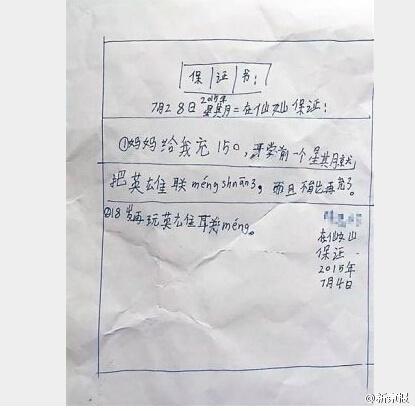 保证书:
2015年
7月28日星其月二在仙山保证:
①妈妈给我充150,开学前一个星其月就
把英雄联méng shān3。而且不能再充了。
②18岁再玩英雄联méng。
在仙女山
保证
2015年
7月4日
@新京报